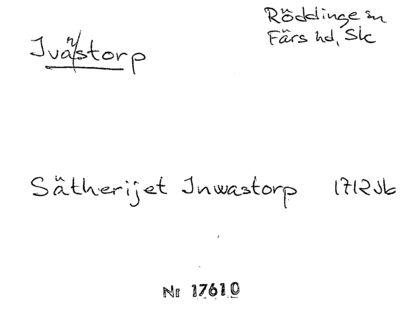 Röddinge sn
Färs hd, Sk
Ivastorp
Sätherijet Inwastorp 1712 Jb
Nr 17610